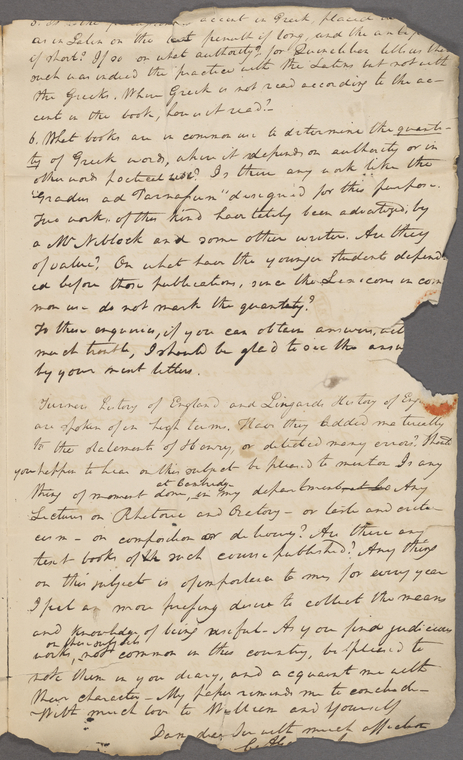 accent in Greek, placed
as in Latin on the penult if long, and the antep
if short? If so on what authority? for Quinctilian tells us that
such was indeed the practice with the Latins but not with
the Greeks. When Greek is not read according to the ac-
cent in the book, how is it read?
6. What books are in common use to determine the quanti-
ty of Greek words, when it depends on authority or in
other words poetical use? Is there any work like the
"Gradus ad Parnassum" designed for this purpose.
Two works of this kind have lately been advertized, by
a Mr Niblock and some other writer. Are they
of value? On what have the younger students depend
ed before those publications, since the Lexicons in com
mon use do not mark the quantity?
To these enquiries, if you can obtain answers,
much trouble, I should be glad to see the answ
by your next letters.
Turner History of England and Lingards History of Eng
are spoken of in high terms. Have they added materially
to the statements of Henry, or detected many errors? Should
you happen to hear on this subject be pleased to mention. Is any
at Cambridge
thing of moment done, in my department Any
Lectures on Rhetoric and Oratory – or taste and criti
cism – on composition or delivery? Are there any
text books of such course published? Any thing
on this subject is of importance to me, for every year
I feel a more pressing desire to collect the means
and knowledge of being useful. As you find judicious
on this subject
works, not common in this country, be pleased to
note them in your diary, and acquaint me with
their character – My paper reminds me to conclude –
With much love to William and Yourself
I am dear Sir with much affection